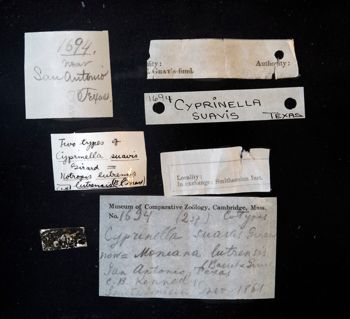 1694.
near
San Antonio
Texas
Authority:
Gray's fund.
1694
CYPRINELLA
SUAVIS TEXAS
Two types of
Cyprinella suavis
Girard =
Notropis lutrensis
Locality:
In exchange. Smithsonian Inst.
Museum of Comparative Zoölogy, Cambridge, Mass.
No. 1694 Cotypes
Cyprinella suavis Girard
now = Moniana lutrensis
San Antonio, Texas
C. B. Kennerly
Smithsonian Nov. 1861